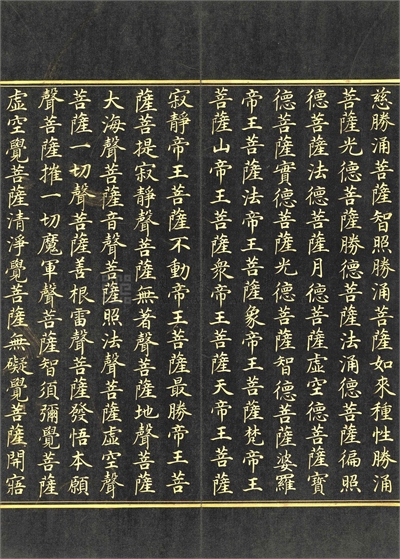 慈勝涌菩薩智照勝涌菩薩如來種性勝涌
菩薩光德菩薩勝德菩薩法涌德菩薩徧照
德菩薩法德菩薩月德菩薩虛空德菩薩寶
德菩薩實德菩薩光德菩薩智德菩薩婆羅
帝王菩薩法帝王菩薩象帝王菩薩梵帝王
菩薩山帝王菩薩衆帝王菩薩天帝王菩薩
寂靜帝王菩薩不動帝王菩薩最勝帝王菩
薩菩提寂靜聲菩薩無著聲菩薩地聲菩薩
大海聲菩薩音聲菩薩照法聲菩薩虛空聲
菩薩一切聲菩薩善根雷聲菩薩發悟本願
聲菩薩摧一切魔軍聲菩薩智須彌覺菩薩
虛空覺菩薩清淨覺菩薩無礙覺菩薩開寤